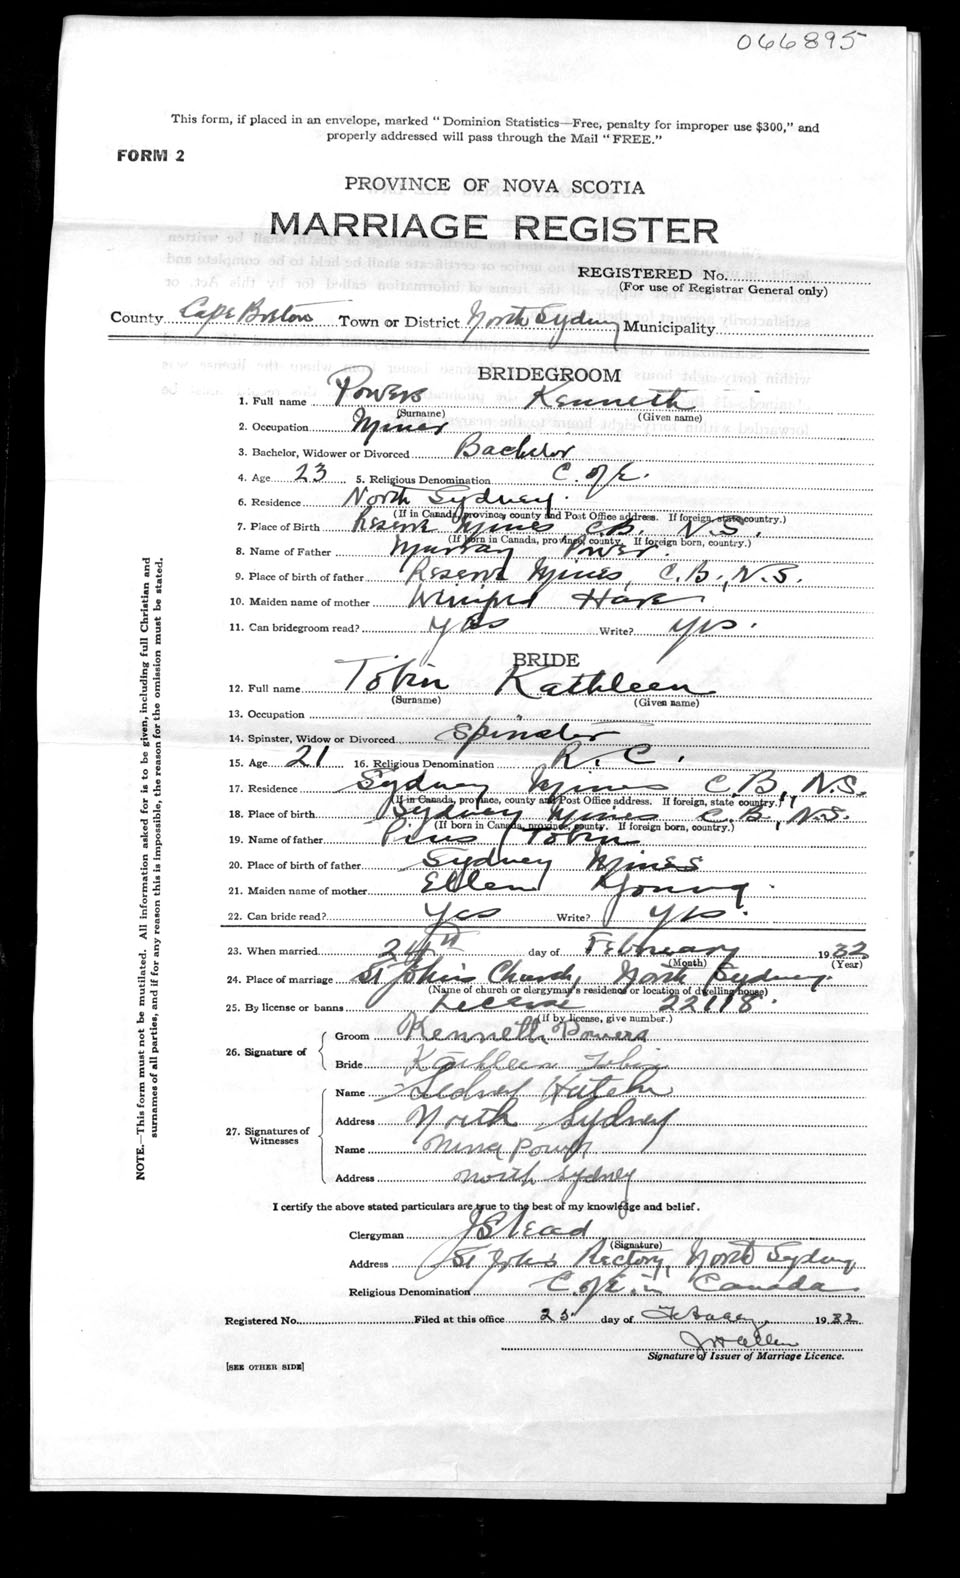 066895
This form, if placed in an envelope, marked "Dominion Statistics—Free, penalty for improper use $300," and
properly addressed will pass through the Mail "FREE."
FORM 2
PROVINCE OF NOVA SCOTIA
MARRIAGE REGISTER
REGISTERED No.
(For use of Registrar General only)
County Cape Breton Town or District North Sydney Municipality
BRIDEGROOM
1. Full name Powers Kenneth
(Surname) (Given name)
2. Occupation Miner
3. Bachelor, Widower or Divorced Bachelor
4. Age 23 5. Religious Denomination C. of E.
6. Residence North Sydney.
(If in Canada, province, county and Post Office address. If foreign, state country.)
7. Place of Birth Reserve Mines C.B. N.S.
(If born in Canada, province, county. If foreign born, country.)
8. Name of Father Murray Power.
9. Place of birth of father Reserve Mines, C.B., N.S.
10. Maiden name of mother Winifred
11. Can bridegroom read? yes Write? yes.
BRIDE
12. Full name Tobin Kathleen
(Surname) (Given name)
13. Occupation
14. Spinster, Widow or Divorced Spinster
15. Age 21 16. Religious Denomination R. C.
17. Residence Sydney Mines C.B., N.S.
(If in Canada, province, county and Post Office address. If foreign, state country.)
18. Place of birth Sydney Mines C.B., N.S.
(If born in Canada, province, county. If foreign born, country.)
19. Name of father Pius Tobin
20. Place of birth of father Sydney Mines
21. Maiden name of mother Ellen Young
22. Can bride read? Yes Write? Yes.
23. When married 24th day of February 1932
(Month) (Year)
24. Place of marriage St John's Church, North Sydney.
(Name of church or clergyman's residence or location of dwelling house)
25. By license or banns License 22118.
(If by license, give number.)
26. Signature of
Groom Kenneth Powers
Bride Kathleen Tobin
27. Signatures of Witnesses
Name Sidney
Address North Sydney
Name Nina Power
Address North Sydney
I certify the above stated particulars are true to the best of my knowledge and belief.
Clergyman
(Signature)
Address St John's Rectory, North Sydney
Religious Denomination C. of E. in Canada
Registered No. Filed at this office 25 day of 1932
J H Allen
Signature of Issuer of Marriage Licence.
[SEE OTHER SIDE]
NOTE.—This form must not be mutilated. All information asked for is to be given, including full Christian and
surnames of all parties, and if for any reason this is impossible, the reason for the omission must be stated.